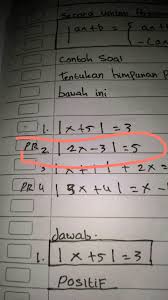 Secara umum
|ax+b| = {
-Con
Contoh Soal
Tentukan himpunan P
bawah ini
1. |x+5| = 3
PR 2 |2x-3| = 5
3 | x + 1 | + 2x =
PR 4 | 3x+4 | = x -
Jawab:
1. |x+5| = 3
Positif